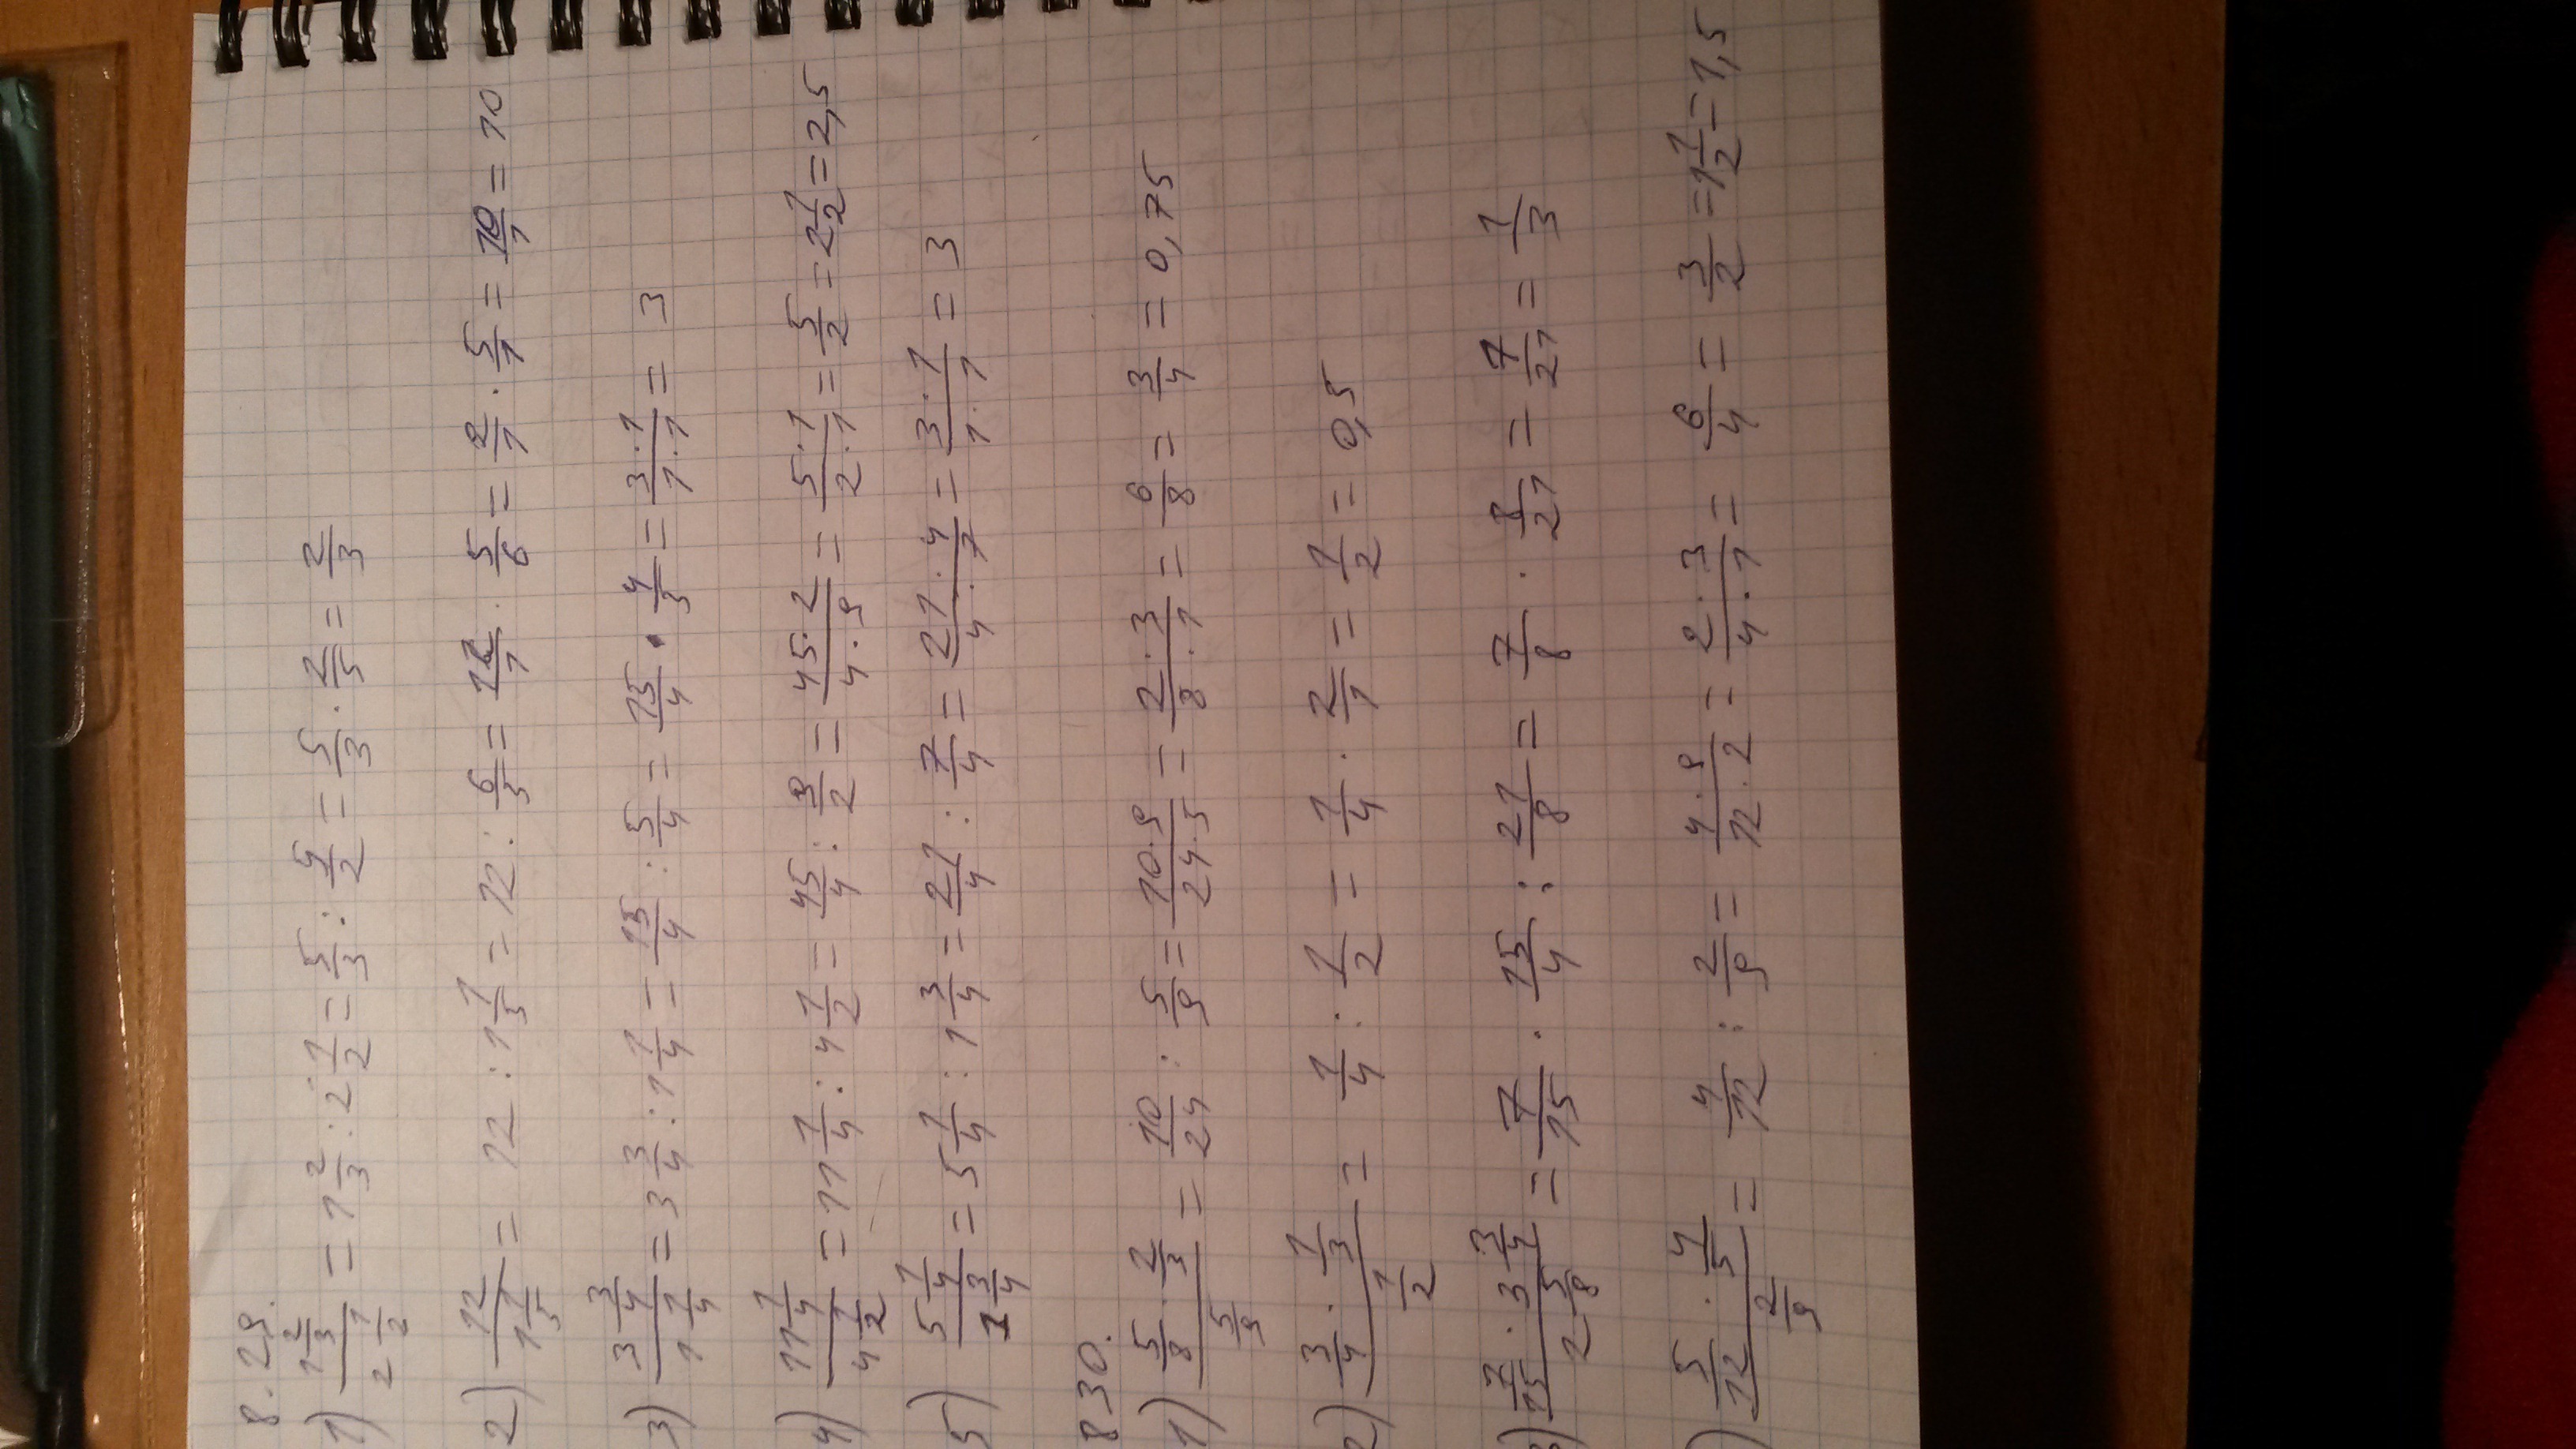 8.29.
1) (1 2/3)/(2 1/2) = 1 2/3 : 2 1/2 = 5/3 : 5/2 = 5/3 · 2/5 = 2/3
2) 12/(1 1/5) = 12 : 1 1/5 = 12 : 6/5 = 12/1 · 5/6 = 2/1 · 5/1 = 10/1 = 10
3) (3 3/4)/(1 1/4) = 3 3/4 : 1 1/4 = 15/4 : 5/4 = 15/4 · 4/5 = (3·1)/(1·1) = 3
4) (11 1/4)/(4 1/2) = 11 1/4 : 4 1/2 = 45/4 : 9/2 = (45·2)/(4·9) = (5·1)/(2·1) = 5/2 = 2 1/2 = 2,5
5) (5 1/4)/(1 3/4) = 5 1/4 : 1 3/4 = 21/4 : 7/4 = (21·4)/(4·7) = (3·1)/(1·1) = 3
8.30.
1) (5/8 · 2/3)/(5/9) = 10/24 : 5/9 = (10·9)/(24·5) = (2·3)/(8·1) = 6/8 = 3/4 = 0,75
2) (3/4 · 1/3)/(1/2) = 1/4 : 1/2 = 1/4 · 2/1 = 1/2 = 0,5
3) (7/15 · 3 3/4)/(2 5/8) = 7/15 · 15/4 : 21/8 = 7/8 · 8/21 = 7/21 = 1/3
) (5/12 · 4/5)/(2/9) = 4/12 : 2/9 = (4·9)/(12·2) = (2·3)/(4·1) = 6/4 = 3/2 = 1 1/2 = 1,5